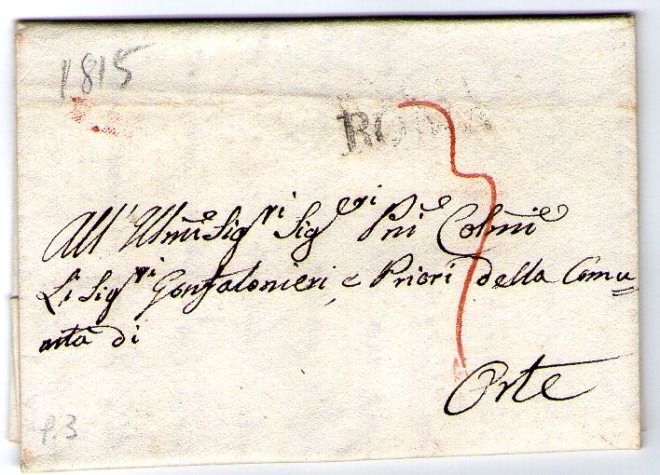 1815
ROMA
All' Illmi Sigri Sigeri Pni Colmi
Li Sigri Gonfalonieri, e Priori della Comu=
nità di
Orte
P.3